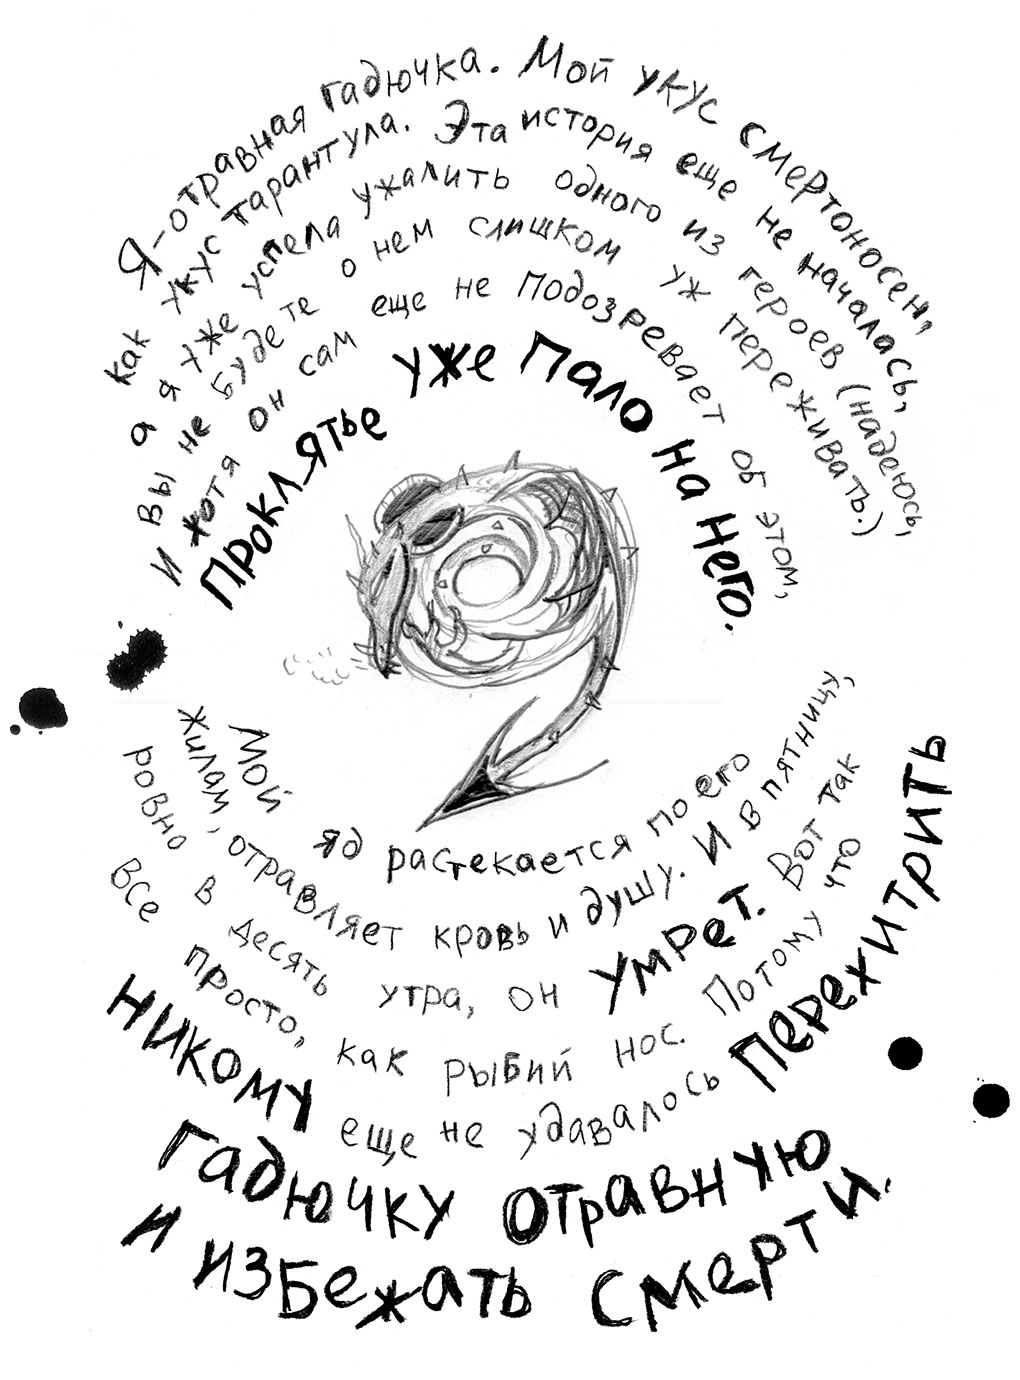 Я-отравная гадючка. Мой укус смертоносен,
как укус тарантула. Эта история еще не началась,
а я уже успела ужалить одного из героев (надеюсь,
вы не будете о нем слишком уж переживать.)
И хотя он сам еще не подозревает об этом,
проклятье уже пало на него.
Мой яд растекается по его
жилам, отравляет кровь и душу. И в пятницу,
ровно в десять утра, он умрет. Вот так
все просто, как рыбий нос. Потому что
никому еще не удавалось перехитрить
гадючку отравную
и избежать смерти.